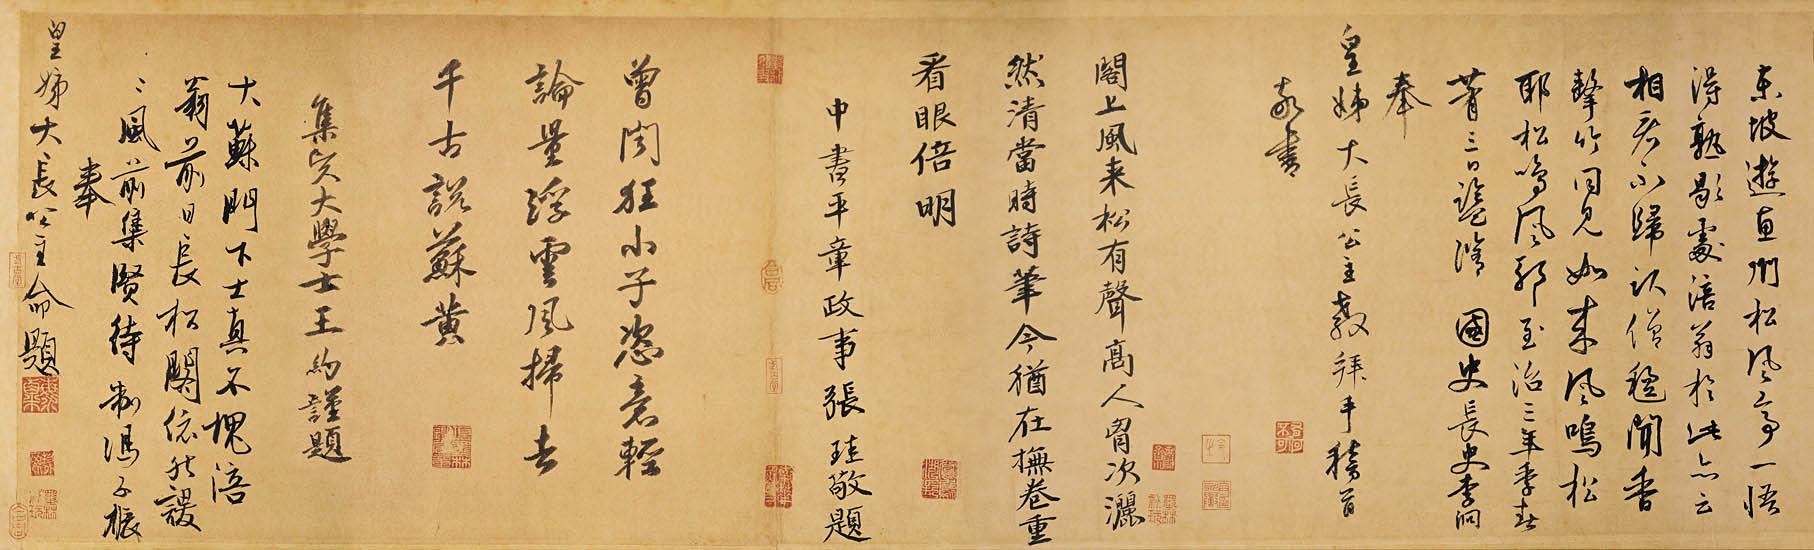 東坡遊惠州松風亭一悟
得熟歇處涪翁於此亦云
相君不歸 僧 聞香
擊竹同見如來風鳴松
耶松鳴風邪至治三年季春
蓂三日 陰 國史長史李泂
奉
皇姊大長公主教拜手稽首
敬書
閣上風来松有聲高人胷次灑
然清當時詩筆今猶在撫卷重
看眼倍明
中書平章政事張珪敬題
曾聞狂小子恣意輕
論量浮雲風掃去
千古說蘇黃
集賢大學士王約謹題
大蘇門下士真不愧涪
翁前日長松閣依然謖
〻風前集賢待制馮子振
奉
皇姊大長公主命題